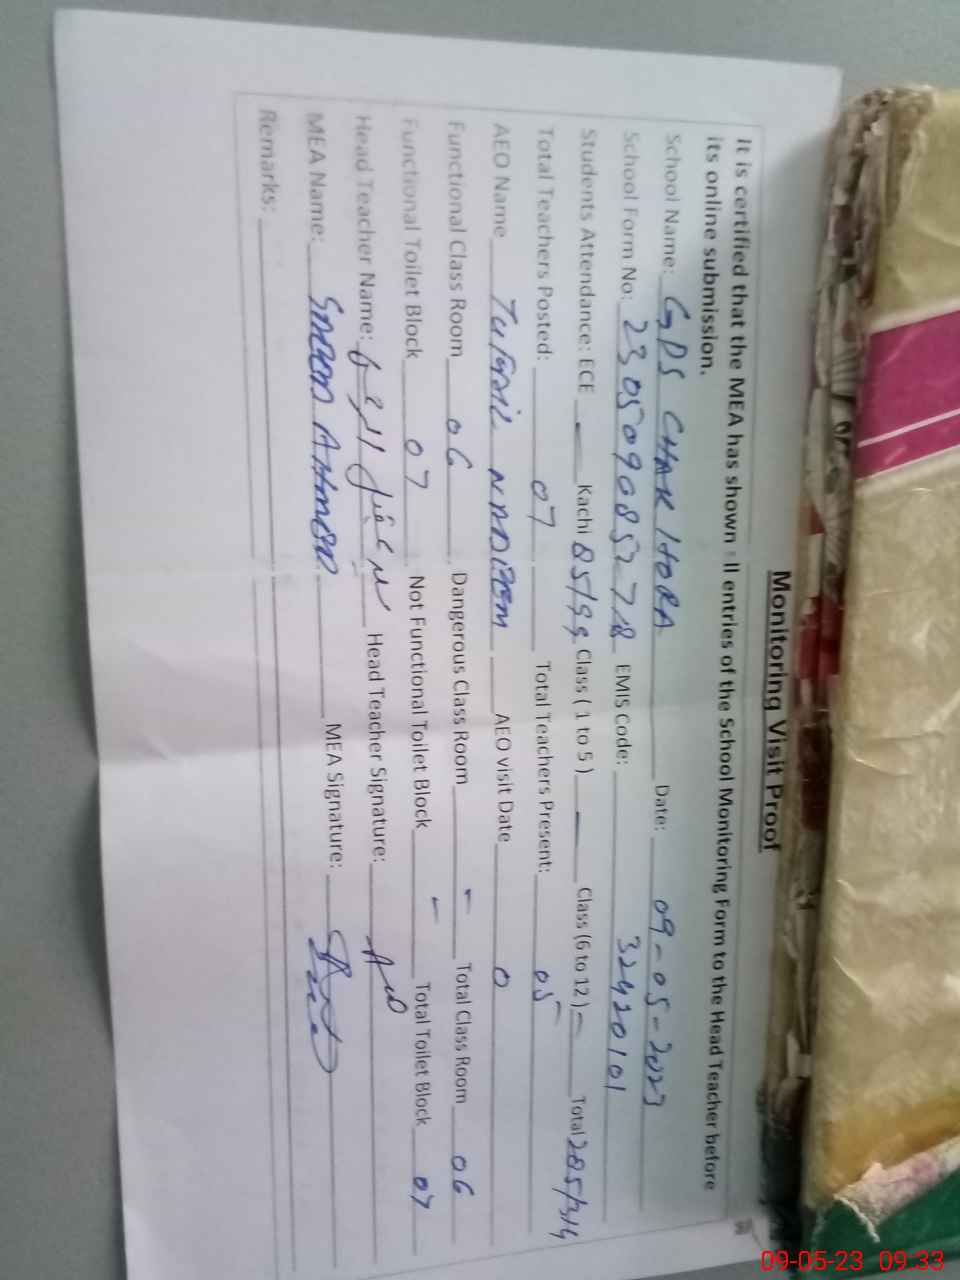 Monitoring Visit Proof
It is certified that the MEA has shown all entries of the School Monitoring Form to the Head Teacher before
its online submission.
School Name: GPS CHAK HORA Date: 09-05-2023
School Form No: EMIS Code: 32420101
Students Attendance: ECE — Kachi 85/99 Class ( 1 to 5 ) — Class (6 to 12 ) — Total 285/314
Total Teachers Posted: 07 Total Teachers Present: 05
AEO Name TUFAIL NADEEM AEO visit Date 0
Functional Class Room 06 Dangerous Class Room - Total Class Room 06
Functional Toilet Block 07 Not Functional Toilet Block - Total Toilet Block 07
Head Teacher Name: Head Teacher Signature:
MEA Name: AHMED MEA Signature:
Remarks:
09-05-23 09:33